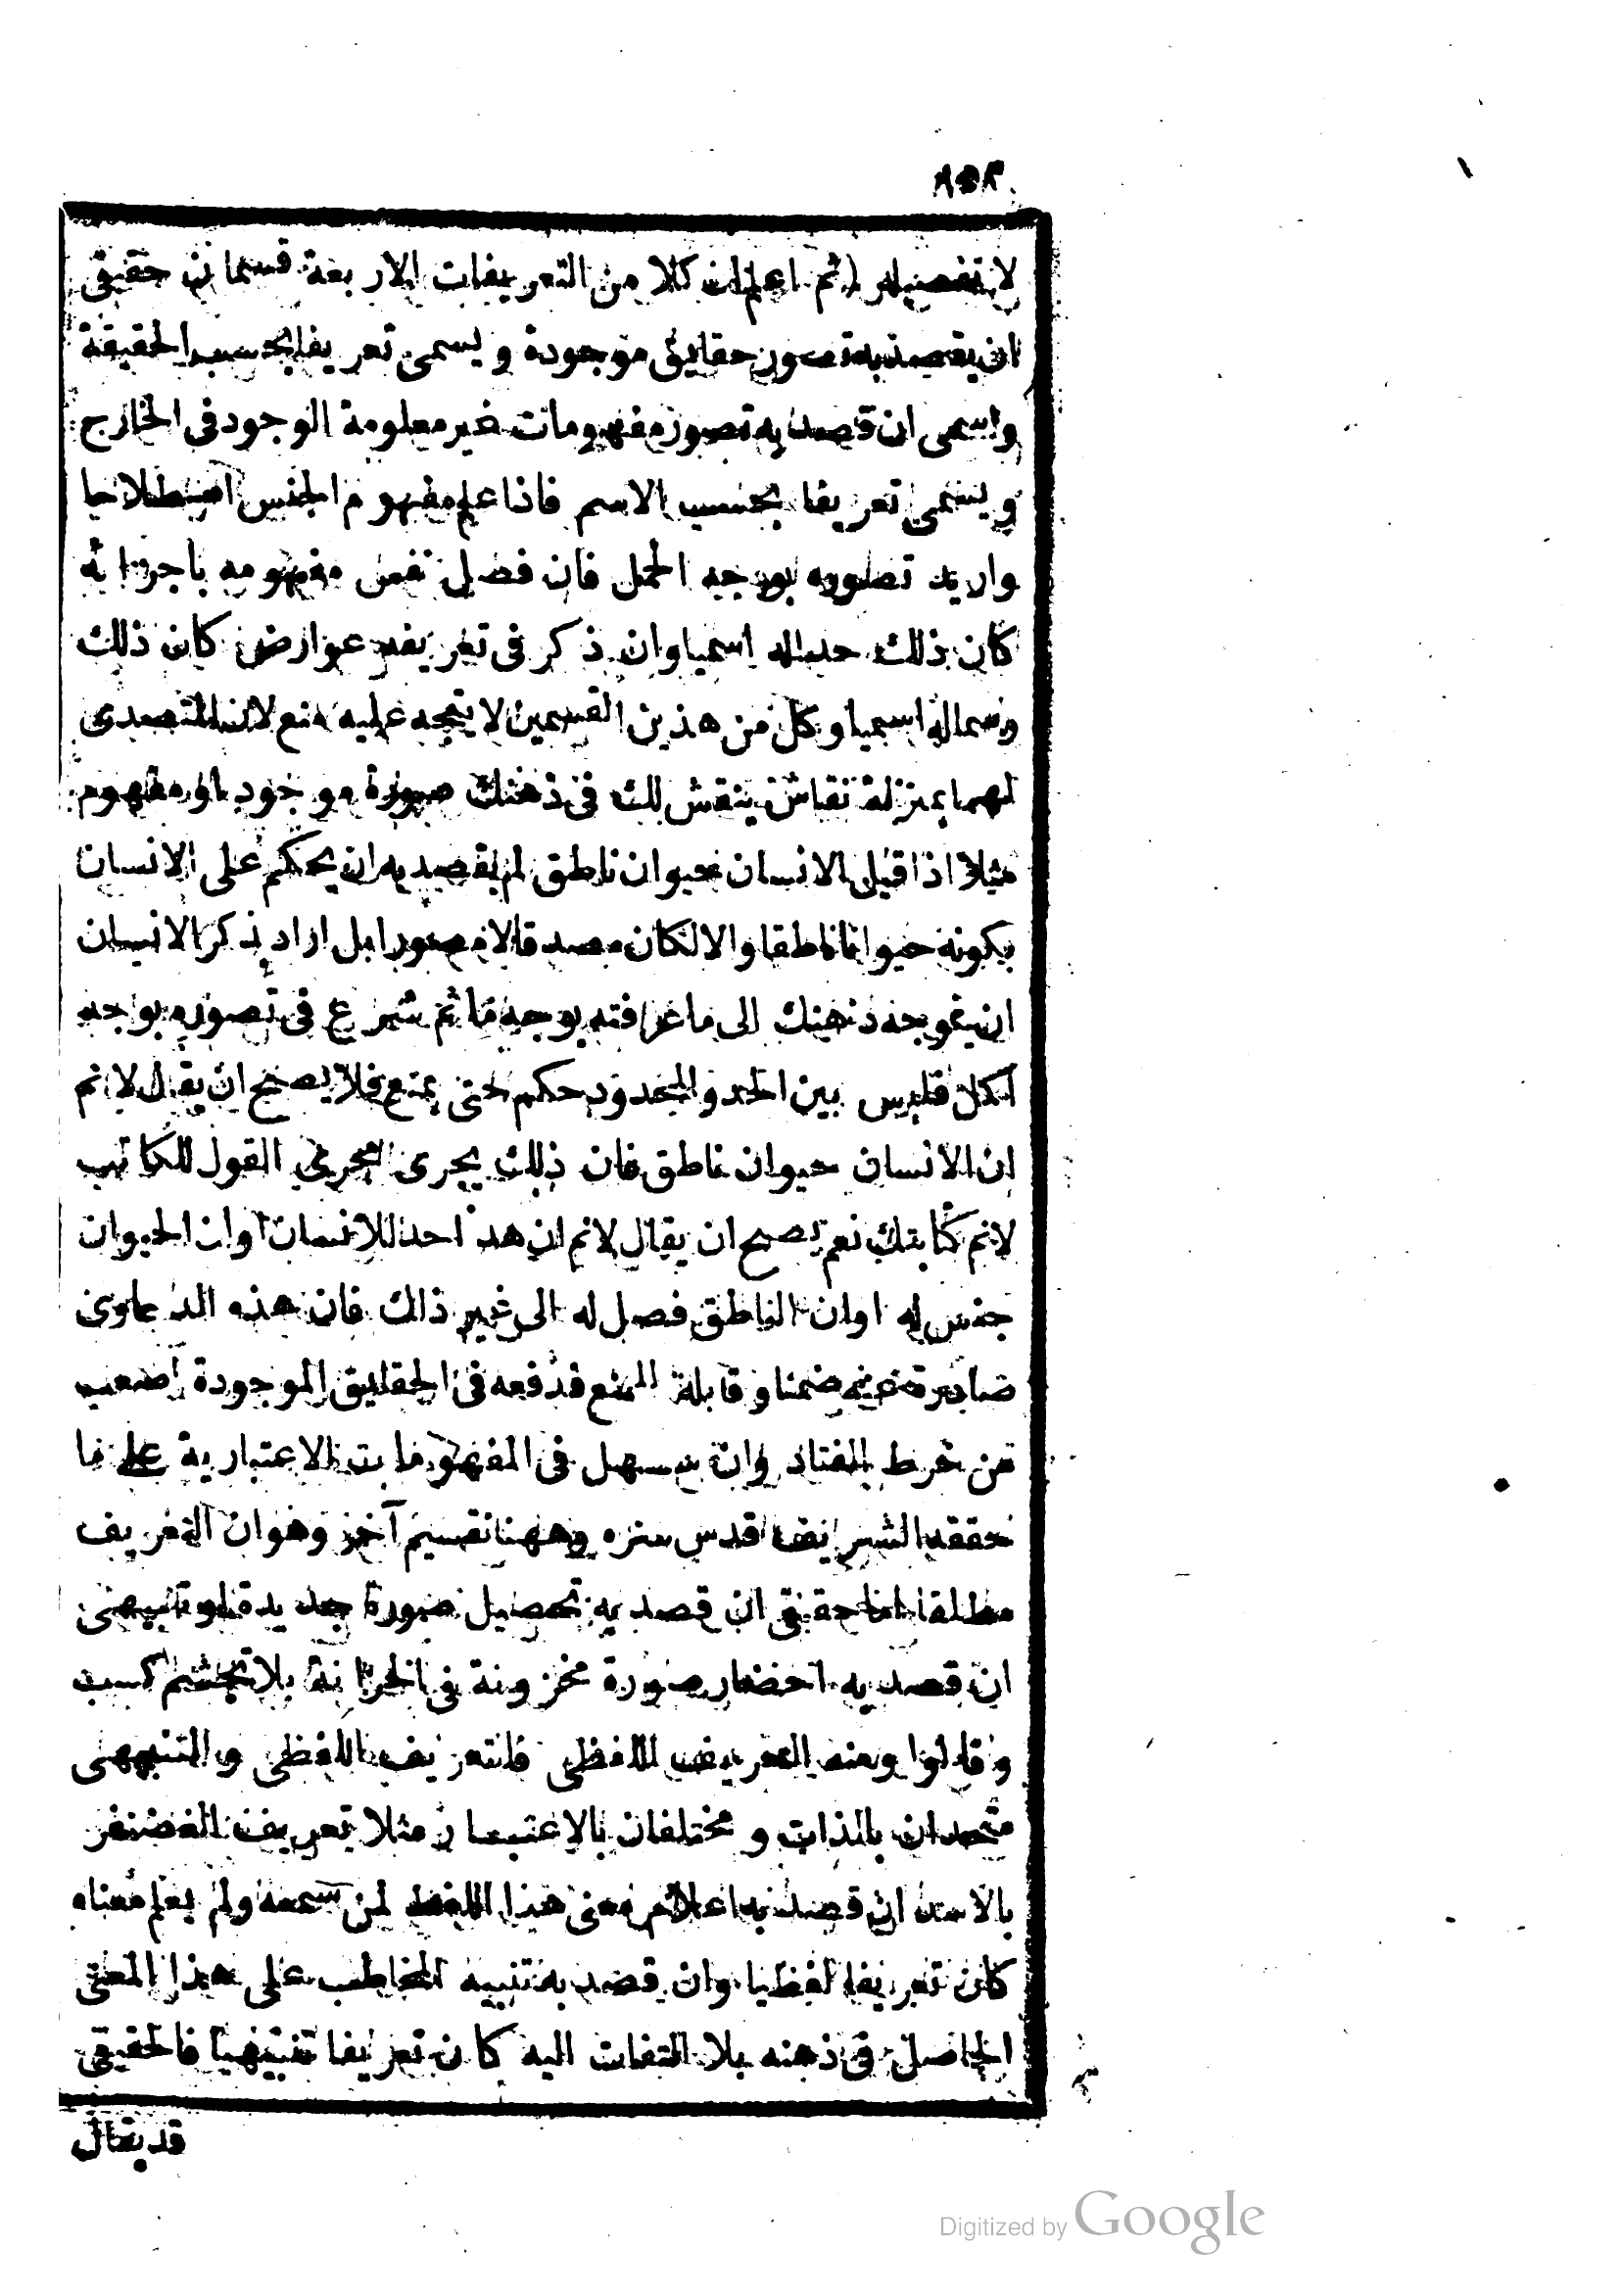 لا تفصيله (ثم اعلم ان كلا من التعريفات الاربعة قسمان حقيقى
ان يقصد به تصور حقايق موجودة ويسمى تعريفا بحسب الحقيقة
واسمى ان قصد به تصور مفهومات غير معلومة الوجود فى الخارج
ويسمى تعريفا بحسب الاسم فاذا علم مفهوم الجنس اصطلاحا
واريد تصوره بوجه اكمل فان فصل نفس مفهومه باجزائه
كان ذلك حدا له اسميا وان ذكر فى تعريفه عوارض كان ذلك
رسما له اسميا وكل من هذين القسمين لا يتجه عليه منع لان المتصدى
لهما بمنزلة نقاش ينقش لك فى ذهنك صورة موجود او مفهوم
مثلا اذا قيل الانسان حيوان ناطق لم يقصد به ان يحكم على الانسان
بكونه حيوانا ناطقا والا لكان مصدقا لا مصورا بل اراد بذكر الانسان
ان يتوجه ذهنك الى ما عرفته بوجه ما ثم شرع فى تصوره بوجه
اكمل فليس بين الحد والمحدود حكم حتى يمنع فلا يصح ان يقال لانم
ان الانسان حيوان ناطق فان ذلك يجرى مجرى القول للكاتب
لانم كتابتك نعم يصح ان يقال لانم ان هذا حد للانسان او ان الحيوان
جنس له او ان الناطق فصل له الى غير ذلك فان هذه الدعاوى
صادرة عنه ضمنا وقابلة للمنع فدفعه فى الحقايق الموجودة اصعب
من خرط القتاد وان سهل فى المفهومات الاعتبارية على ما
حققه الشريف قدس سره وههنا تقسيم آخر وهو ان التعريف
مطلقا اما حقيقى ان قصد به تحصيل صورة جديدة او تنبيهى
ان قصد به احضار صورة مخزونة فى الخزانة بلا تجشم كسب
وقالوا ومنه التعريف اللفظى فالتعريف اللفظى والتنبيهى
متحدان بالذات ومختلفان بالاعتبار مثلا تعريف الغضنفر
بالاسد ان قصد به اعلام معنى هذا اللفظ لمن سمعه ولم يعلم معناه
كان تعريفا لفظيا وان قصد به تنبيه المخاطب على هذا المعنى
الحاصل فى ذهنه بلا التفات اليه كان تعريفا تنبيهيا فالحقيقى
قد يقال
Digitized by Google